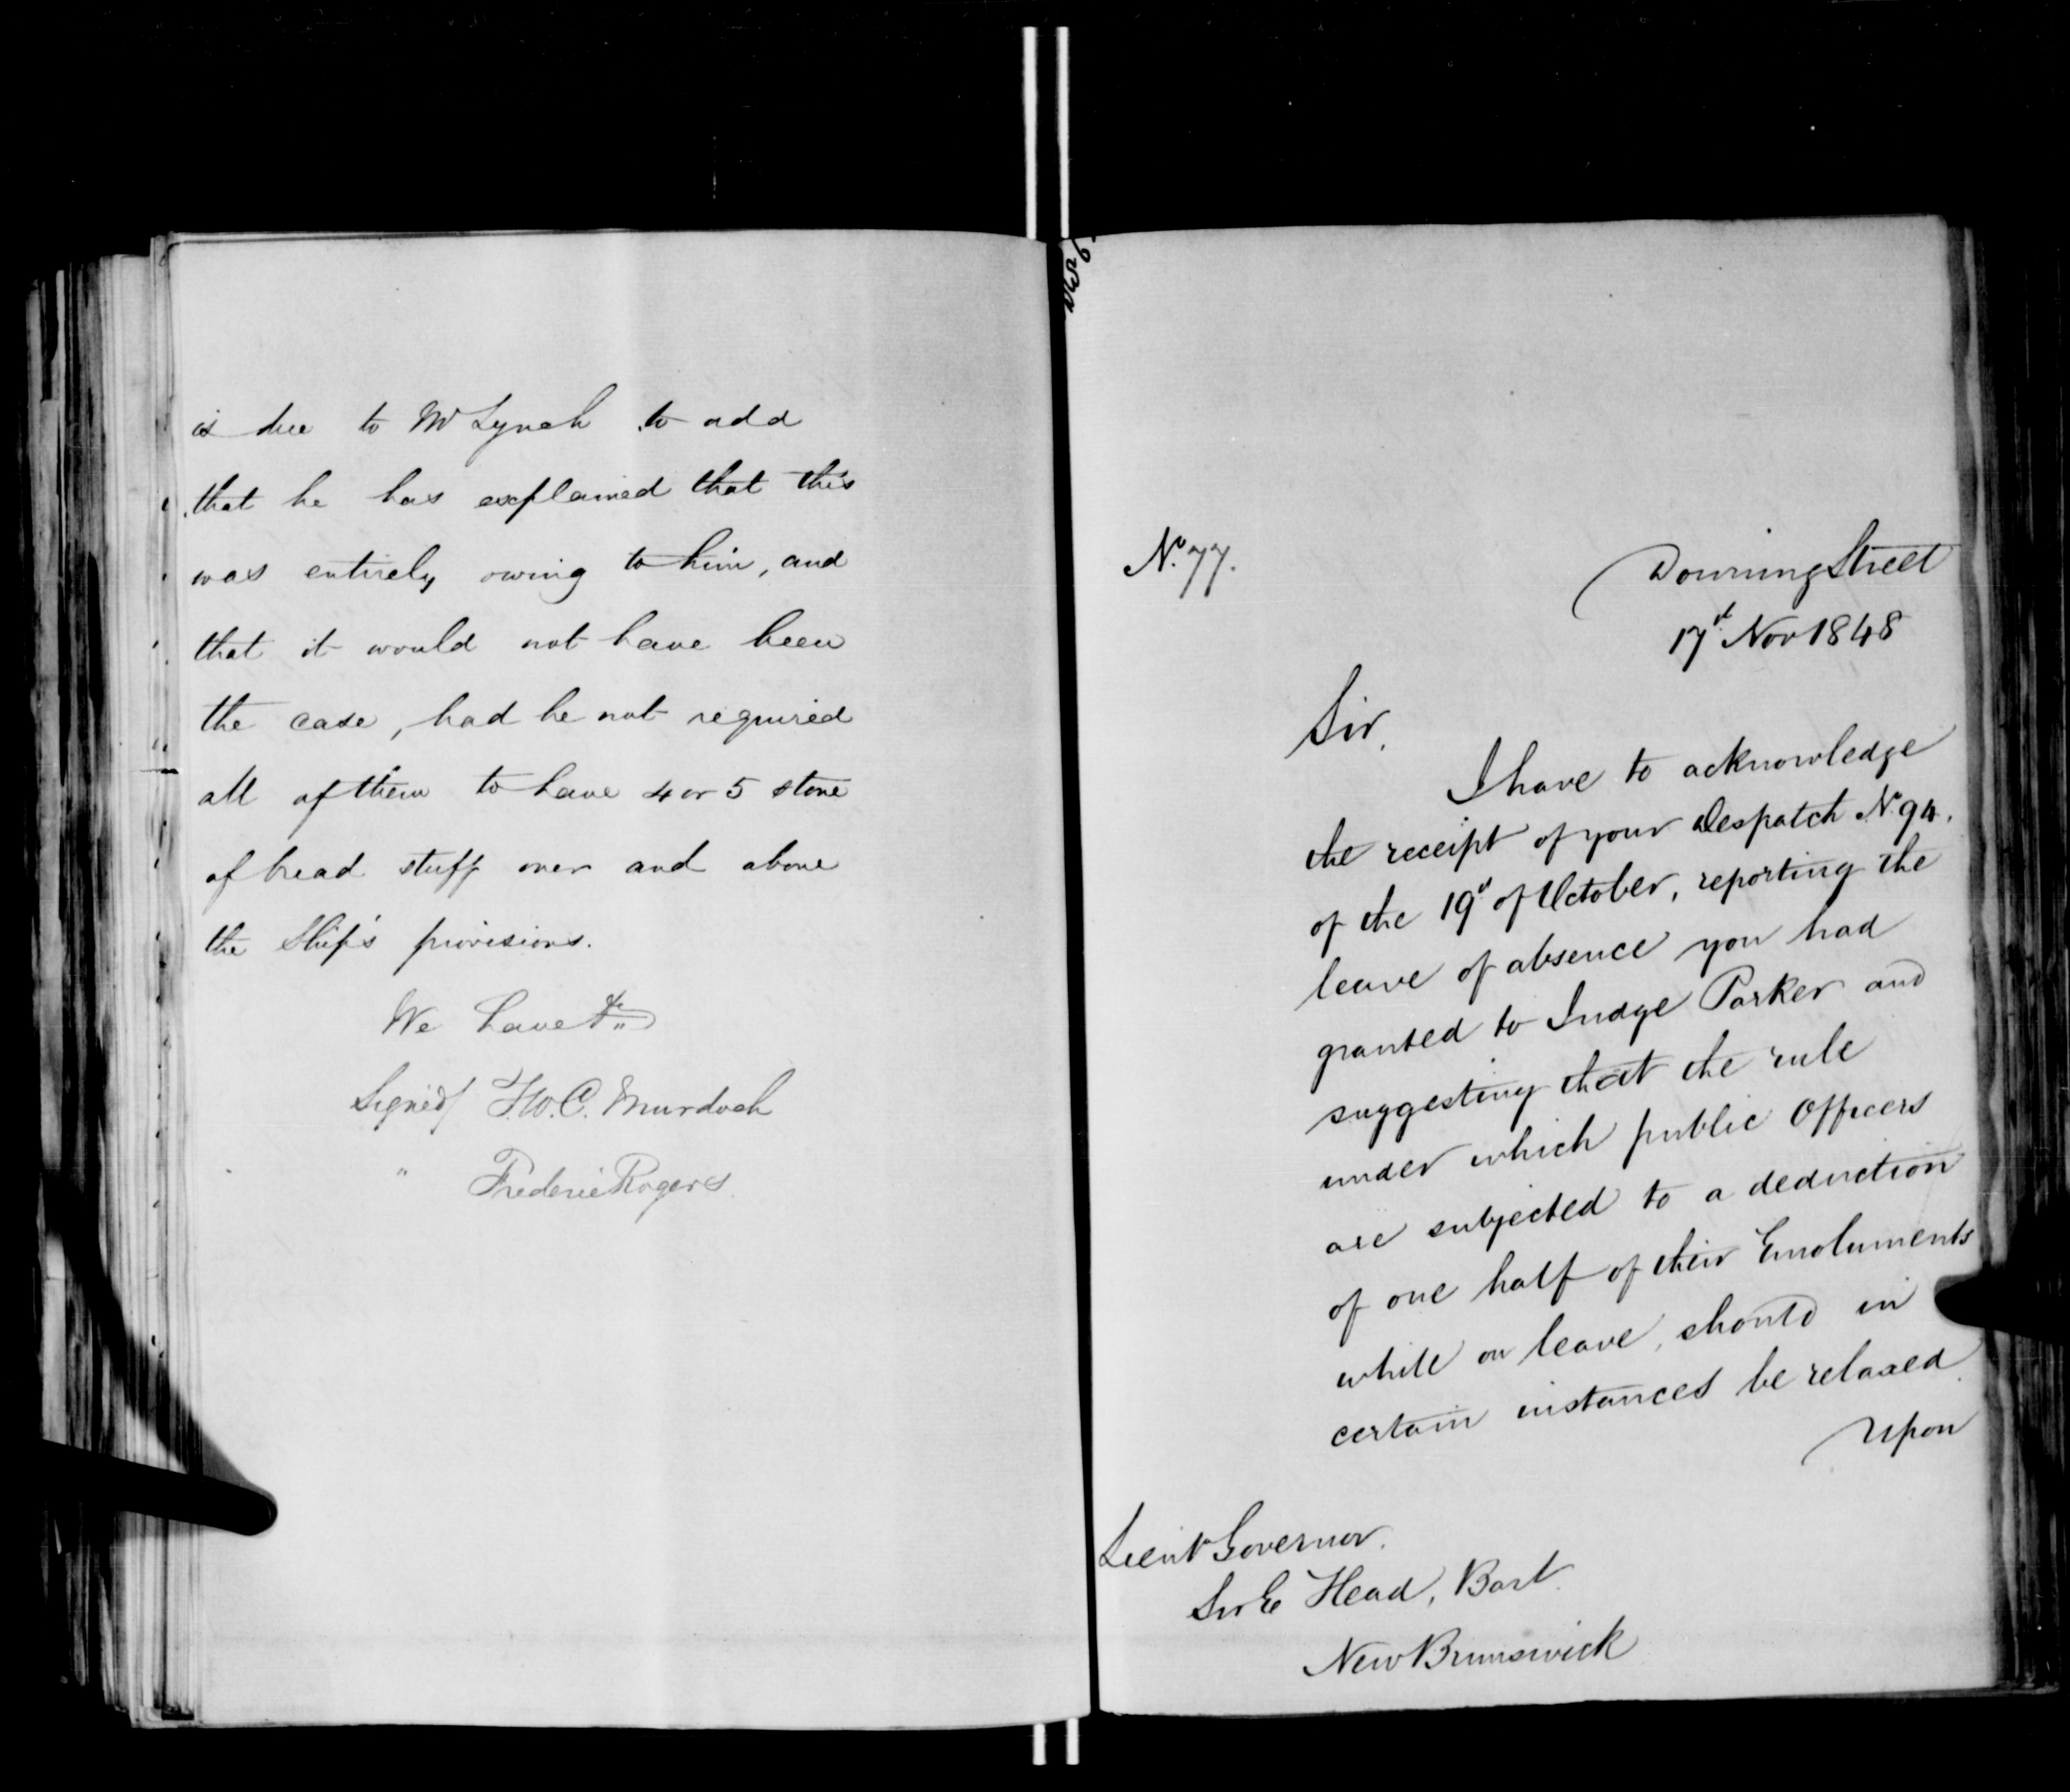 is due to Mr Lynch to add
that he has explained that this
was entirely owing to him, and
that it would not have been
the case, had he not required
all of them to have 4 or 5 stone
of bread stuff over and above
the Ship's provisions.
We have &c
Signed/ T.W.C. Murdoch
" Frederic Rogers
No. 77.
Downing Street
17th Nov 1848
Sir,
I have to acknowledge
the receipt of your Despatch No 94.
of the 19th of October, reporting the
leave of absence you had
granted to Judge Parker and
suggesting that the rule
under which public Officers
are subjected to a deduction
of one half of their Emoluments
while on leave, should in
certain instances be relaxed.
Upon
Lieut Governor.
Sir E Head, Bart.
New Brunswick